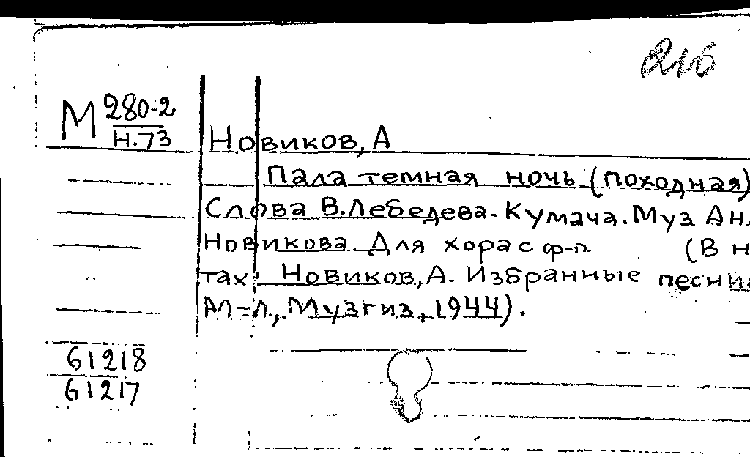 216
М 280-2
Н.73
Новиков, А
Пала темная ночь (походная)
Слова В.Лебедева-Кумача. Муз Ан.
Новикова Для хора с ф-п (В н
тах: Новиков, А. Избранные песни
М-Л., Музгиз, 1944).
61218
61217